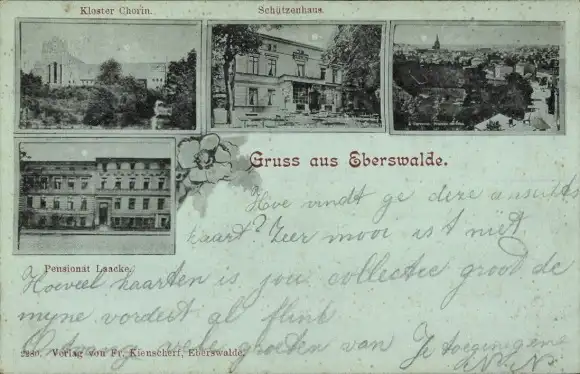 Kloster Chorin.
Schützenhaus.
Gruss aus Eberswalde.
Pensionat Laacke.
Hoe vindt ge deze ansicht
kaart? Zeer mooi ist niet
Hoeveel kaarten is jou collectie groot de
myne vordert al flink
Ontvang vele groeten van Je toegenegene
2280. Verlag von Fr. Kienscherf, Eberswalde.